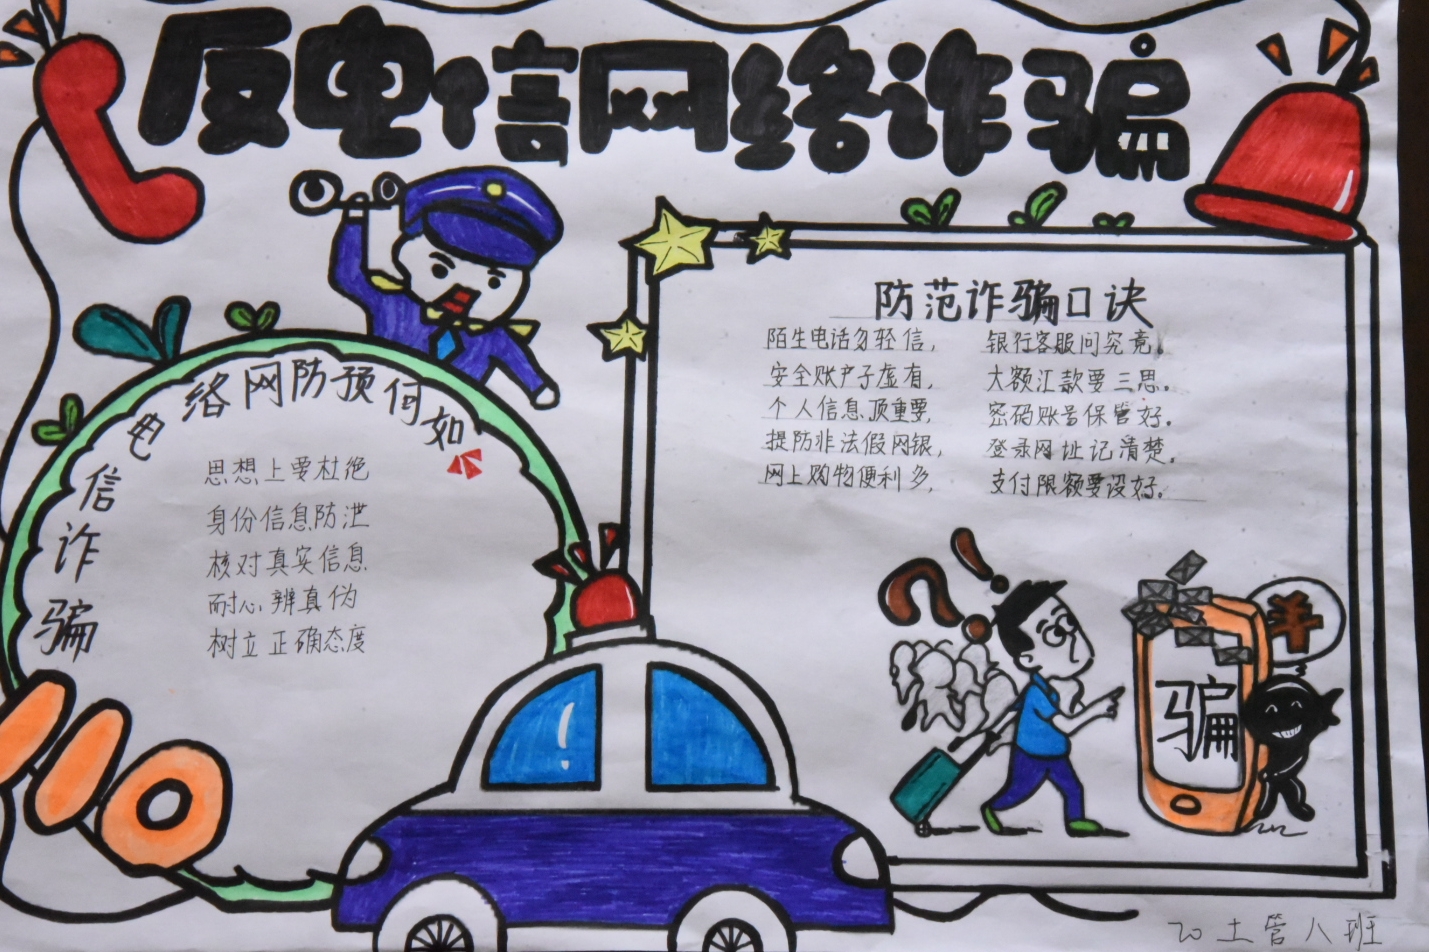 反电信网络诈骗
如何预防网络电信诈骗
思想上要杜绝
身份信息防泄
核对真实信息
耐心辨真伪
树立正确态度
110
防范诈骗口诀
陌生电话勿轻信， 银行客服问究竟。
安全账户子虚有， 大额汇款要三思。
个人信息顶重要， 密码账号保管好。
提防非法假网银， 登录网址记清楚。
网上购物便利多， 支付限额要设好。
?!
骗
羊
20土管八班